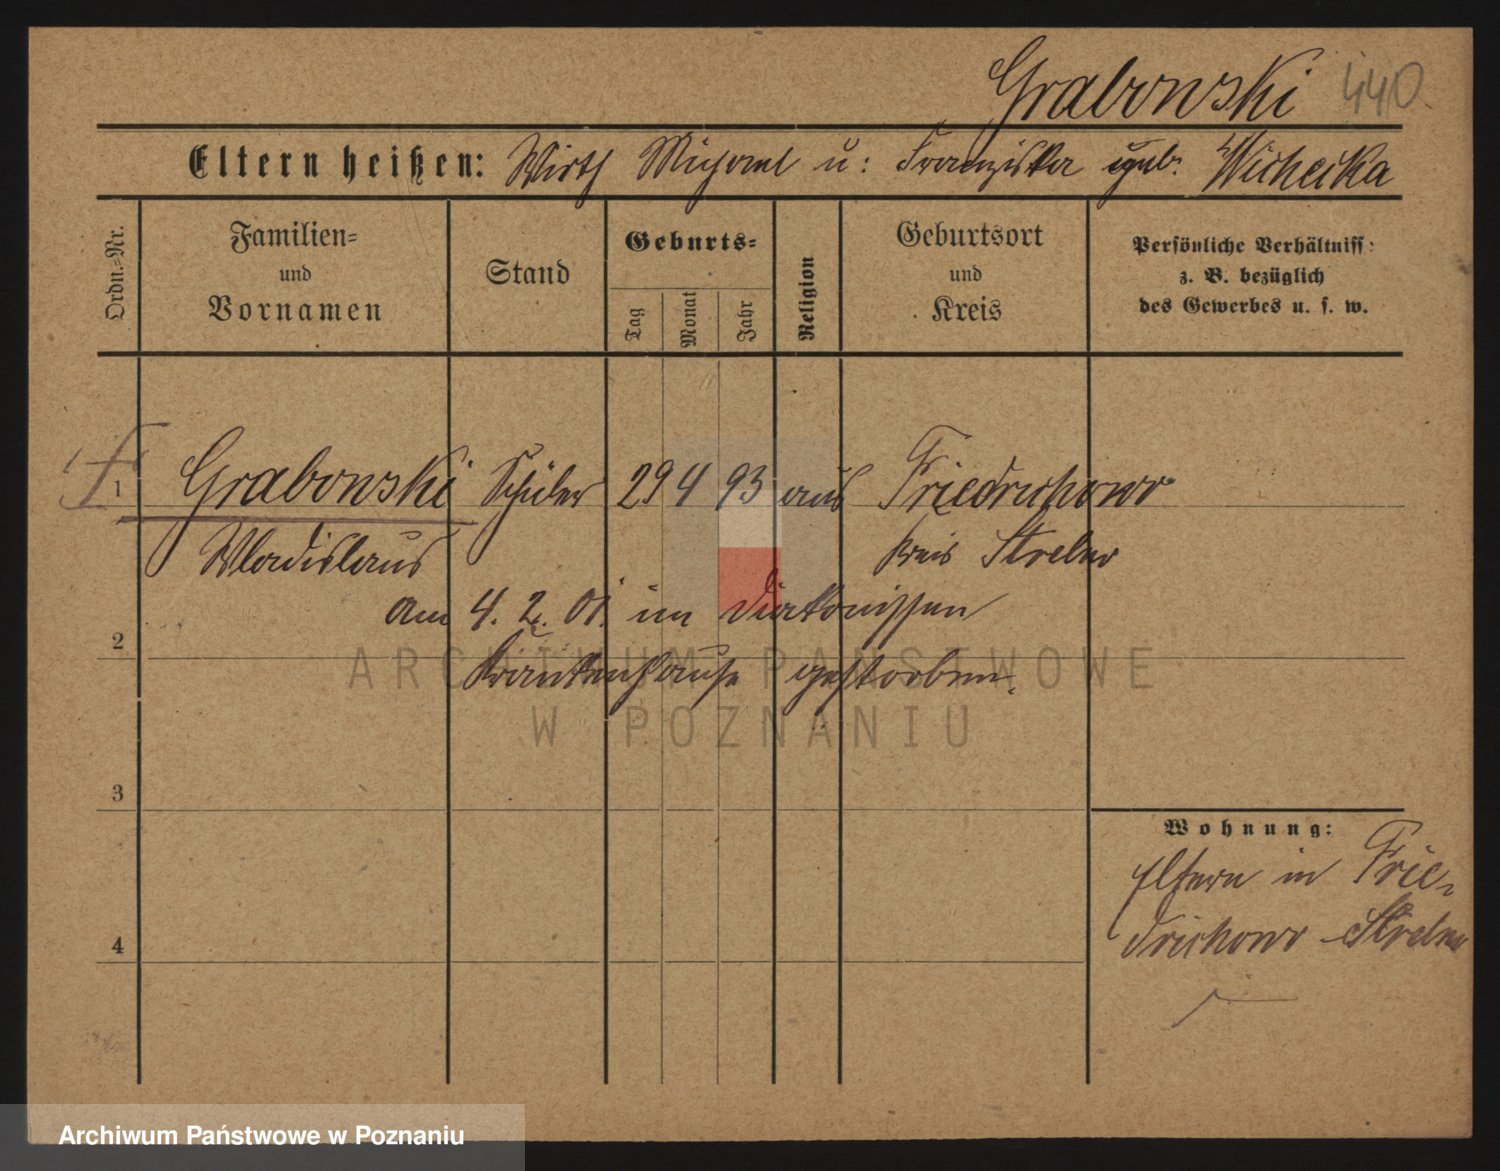 Grabowski 440
Eltern heißen: Wirth Michael u: Franziska geb.
Ordn.-Nr.
Familien-
und
Vornamen
Stand
Geburts-
Tag
Monat
Jahr
Religion
Geburtsort
und
Kreis
Persönliche Verhältniss:
z. B. bezüglich
des Gewerbes u. s. w.
1 Grabowski Schüler 29 4 93 aus Friedrichowo
Wladislaus Kreis Strelno
am 4. 2. 01. im Diakonissen
2
Krankenhause gestorben.
3
Wohnung:
Eltern in Frie-
drichowo Strelno
4
ARCHIWUM PAŃSTWOWE
W POZNANIU
Archiwum Państwowe w Poznaniu